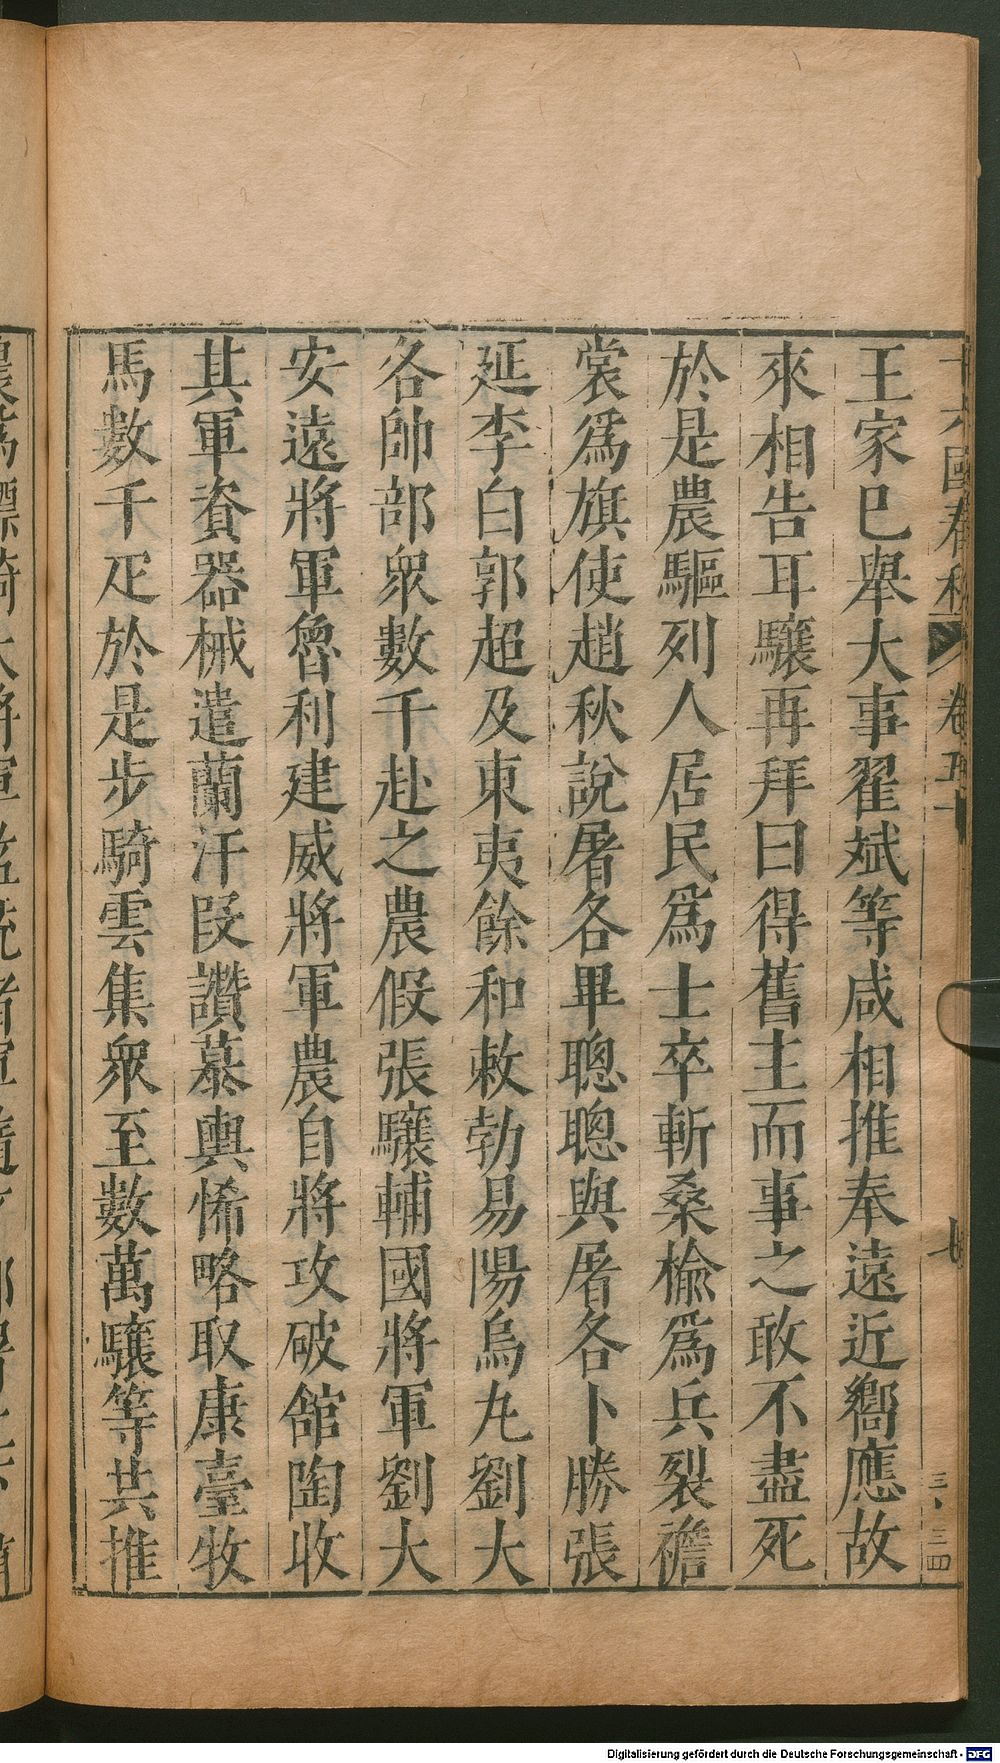 王家巳舉大事翟斌等咸相推奉遠近嚮應故
來相告耳驤再拜曰得舊主而事之敢不盡死
於是農驅列人居民爲士卒斬桑榆爲兵裂襜
裳爲旗使趙秋說屠各畢聰聰與屠各卜勝張
延李白郭超及東夷餘和敕勃易陽烏丸劉大
各帥部衆數千赴之農假張驤輔國將軍劉大
安遠將軍魯利建威將軍農自將攻破館陶收
其軍資器械遣蘭汗段讚慕輿悕略取康臺牧
馬數千疋於是步騎雲集衆至數萬驤等共推
十六國春秋 卷五十
七
三、三四
Digitalisierung gefördert durch die Deutsche Forschungsgemeinschaft - DFG